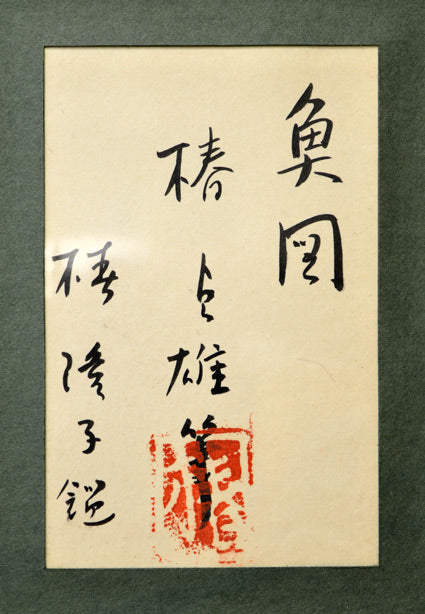 魚図
椿貞雄筆
椿隆子鑑